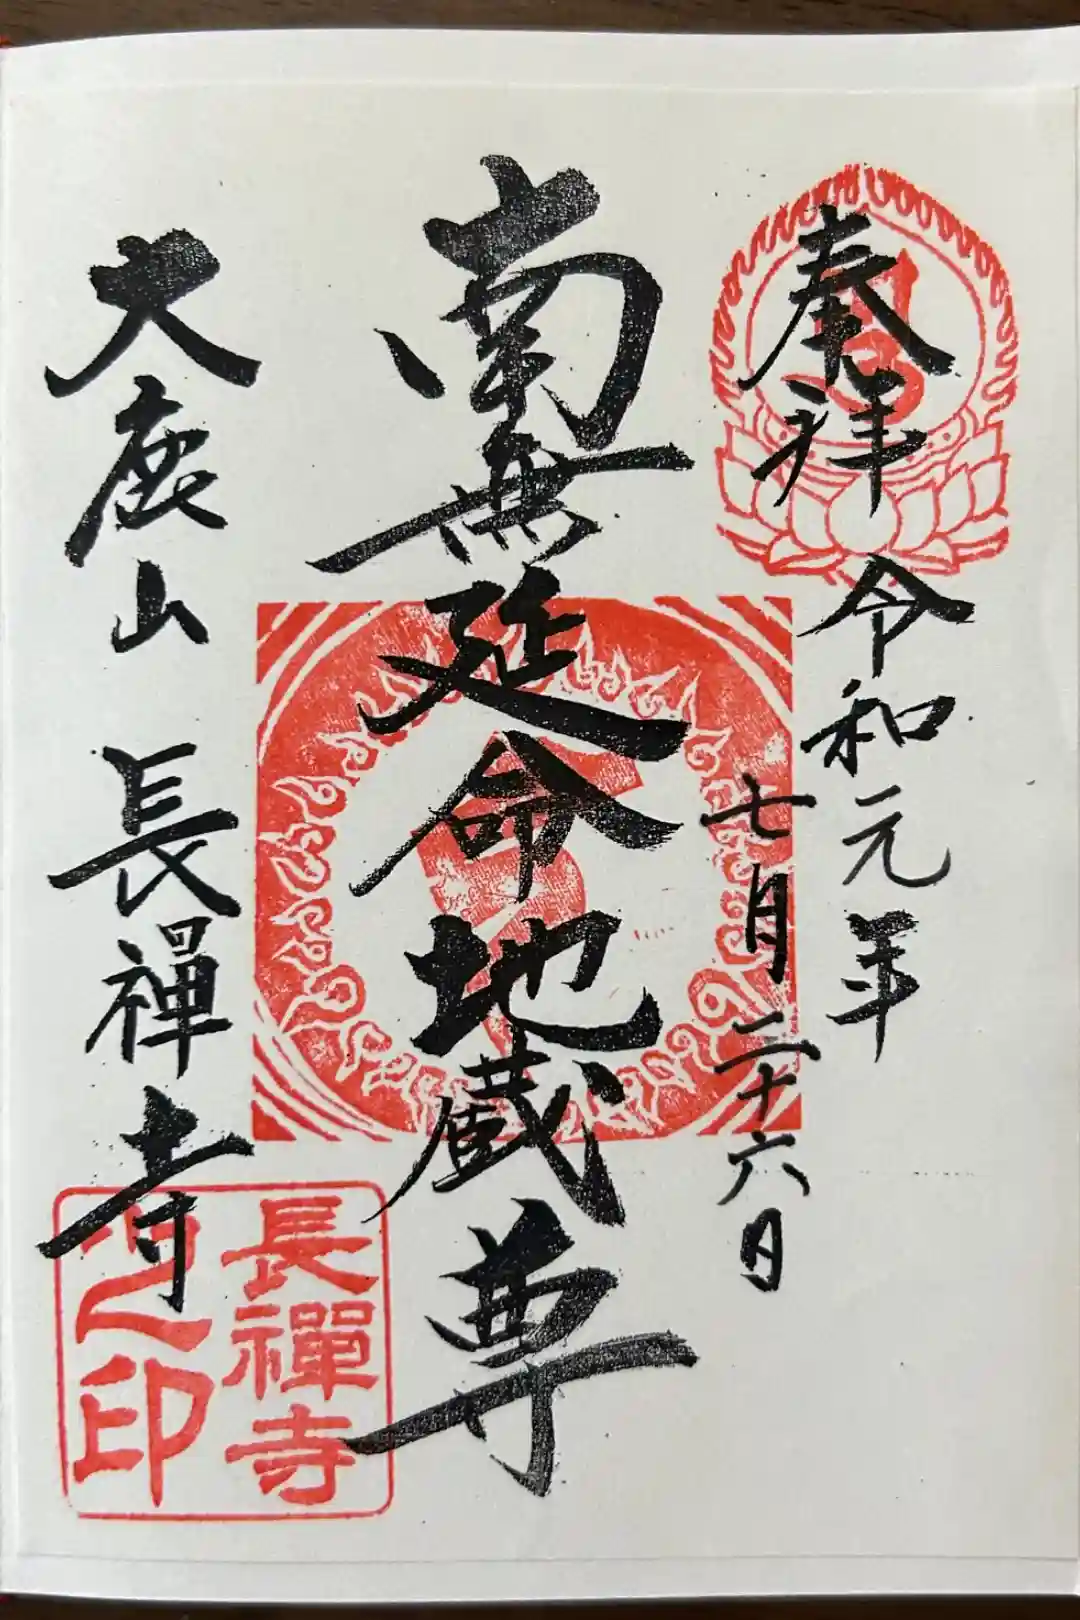 奉拝
令和元年
七月二十六日
南無延命地蔵尊
大鹿山 長禪寺
長禪寺
之印